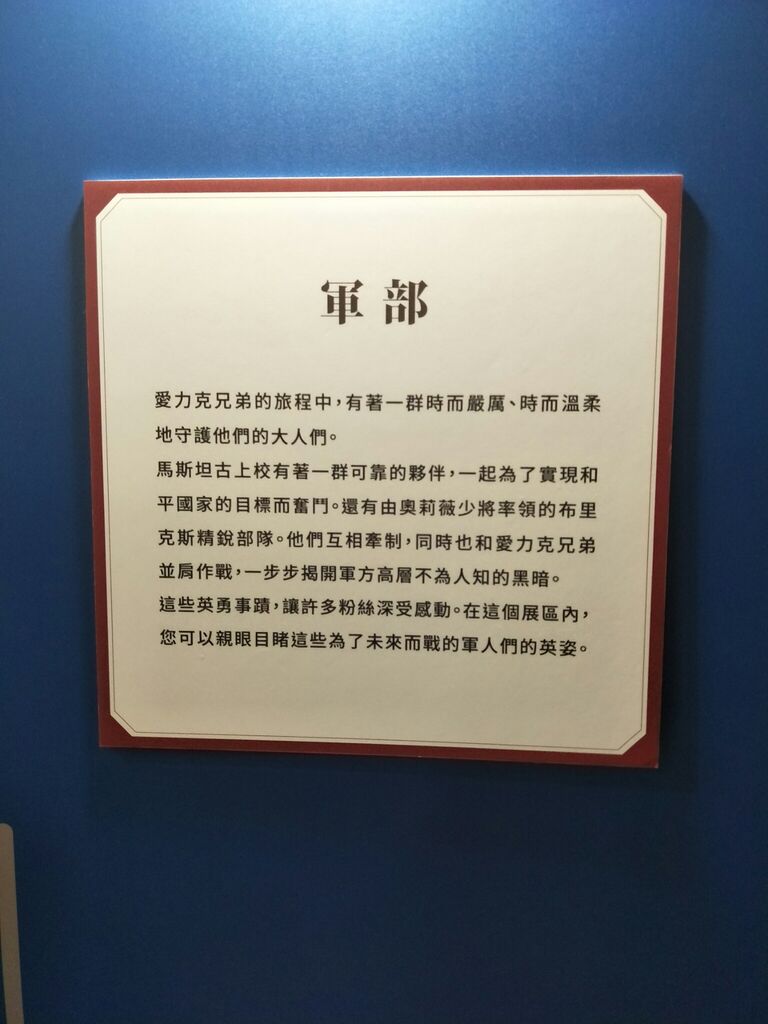 軍部
愛力克兄弟的旅程中，有著一群時而嚴厲、時而溫柔
地守護他們的大人們。
馬斯坦古上校有著一群可靠的夥伴，一起為了實現和
平國家的目標而奮鬥。還有由奧莉薇少將率領的布里
克斯精銳部隊。他們互相牽制，同時也和愛力克兄弟
並肩作戰，一步步揭開軍方高層不為人知的黑暗。
這些英勇事蹟，讓許多粉絲深受感動。在這個展區內，
您可以親眼目睹這些為了未來而戰的軍人們的英姿。